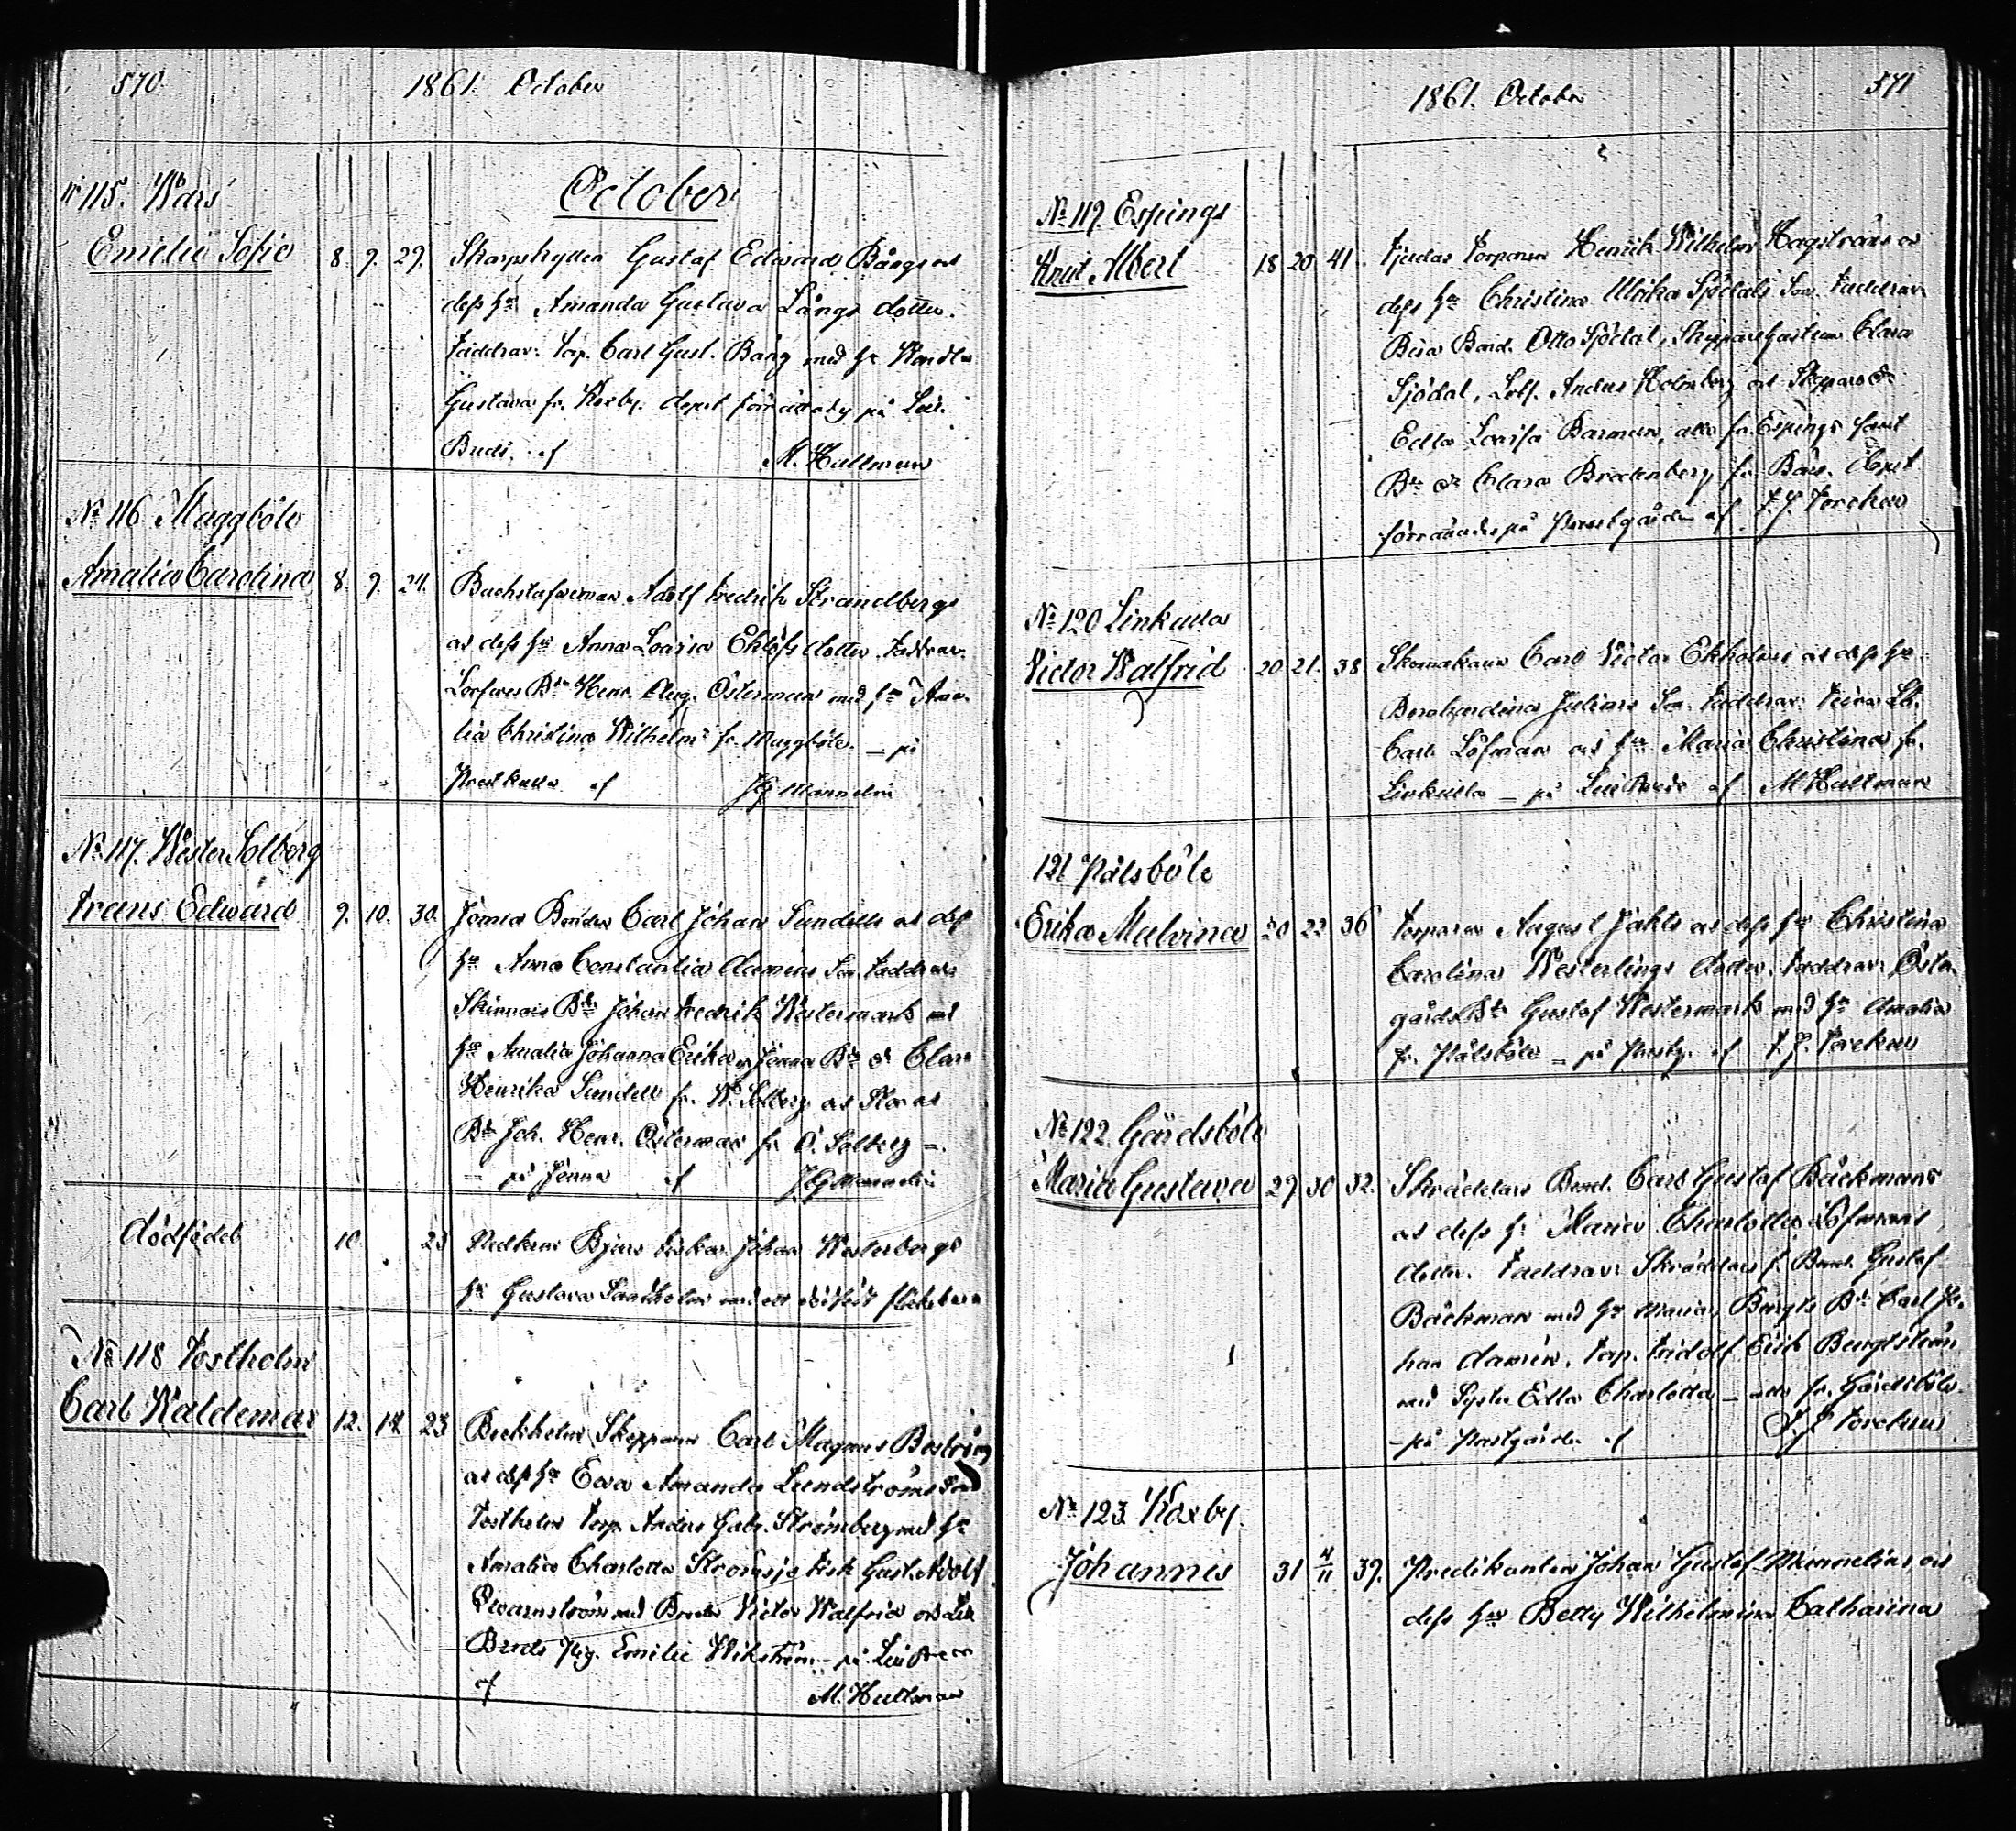 570. 1861. October
October
No 115. Wårs
Emelie Sofie 8. 9. 29. Skarpskytten Gustaf Edward Bångs och
dess hu Amanda Gustava Långs dotter.
Faddrar: Torp. Carl Gust. Bång med hu
Gustava fr. Koxby. döpt förrättades på Lill
Breds. af M. Hultman
No 116. Maggböle
Amalia Carolina 8. 9. 24. Backstufveman Adolf Fredrik Strandbergs
och dess hu Anna Lovisa Eklöfs dotter. Faddrar:
Bdn Henr. Aug. Österman med hu Ama-
lia Christina Wilhelms fr. Maggböle. – på
af JG Minnelin
No 117. Wester Solberg
Frans Edward 9. 10. 30. Jönna Bonden Carl Johan Sundells och dess
hu Anna Constantia Clemens Son. Faddrar:
Skinnars Bdn Johan Fredrik Westermark med
hu Amalia Johanna Erika, Jönna Bdn dr Clara
Henrika Sundell fr. W. Solberg och
Bdn Joh. Henr. Österman fr Ö. Solberg –
– på Jönna af JG Minnelin
dödfödd 10. 23 Bjärs Fiskar. Johan Westerbergs
hu Gustava med ett dödfödt flickebarn
No 118 Tostholm
Carl Waldemar 12. 14. 23 Beckholm Skepparen Carl Magnus Boström
och dess hu Eva Amanda Lundströms Son
Tostholm Torp. Anders Gabr. Strömberg med hu
Amalia Charlotta Gust. Adolf
Qvarnström med Victor Walfrid och Lill
Breds Pig. Emilie Wikström – på Lill Breds
af M. Hultman
1861. October 571
No 119. Espings
Knut Albert 18 20 41. Torparen Henrik Wilhelm Hagströms och
dess hu Christina Ulrika Sjödals Son. Faddrar:
Bond. Otto Sjödal, Skepparehustrun Clara
Sjödal, Anders Holmberg och Skeppare dr
Edla Lovisa Barman, alla fr. Espings samt
Bdn dr Clara Bredenberg fr. döpet
förrättades på Prestgården af F. J. Forchen
No 120 Linkulla
Victor Walfrid 20. 21. 38. Skomakaren Carl Victor Ekholms och dess hu
Bernhardina Julians Son. Faddrar:
Carl Löfman och hu Maria Christina fr.
Linkulla – på Lill Breds af M Hultman
121 Pålsböle
Erika Malvina 20 22 36 Torparen August Jahls och dess hu Christina
Carolina Westerlings dotter. Faddrar: Öster
gårds Bdn Gustaf Westermark med hu Amalia
fr. Pålsböle – på Prestg. af F. J. Forchen
No 122. Gördsböle
Maria Gustava 29 30 32. Skräddars Bond. Carl Gustaf Bäckmans
och dess hu Maria Charlotta Löfmans
dotter. Faddrar: Skräddars f. Bond. Gustaf
Bäckman med hu Maria, Bengts Bdn Carl Jo-
han Clamén, Torp. Fridolf Erik Bengtström
med Syster Edla Charlotta – alla fr. Gördsböle.
– på Prestgården af F. J. Forchen
No 123. Koxby.
Johannes 31 4/11 39. Predikanten Johan Gustaf Minnelins och
dess hu Betty Wilhelmina Catharina